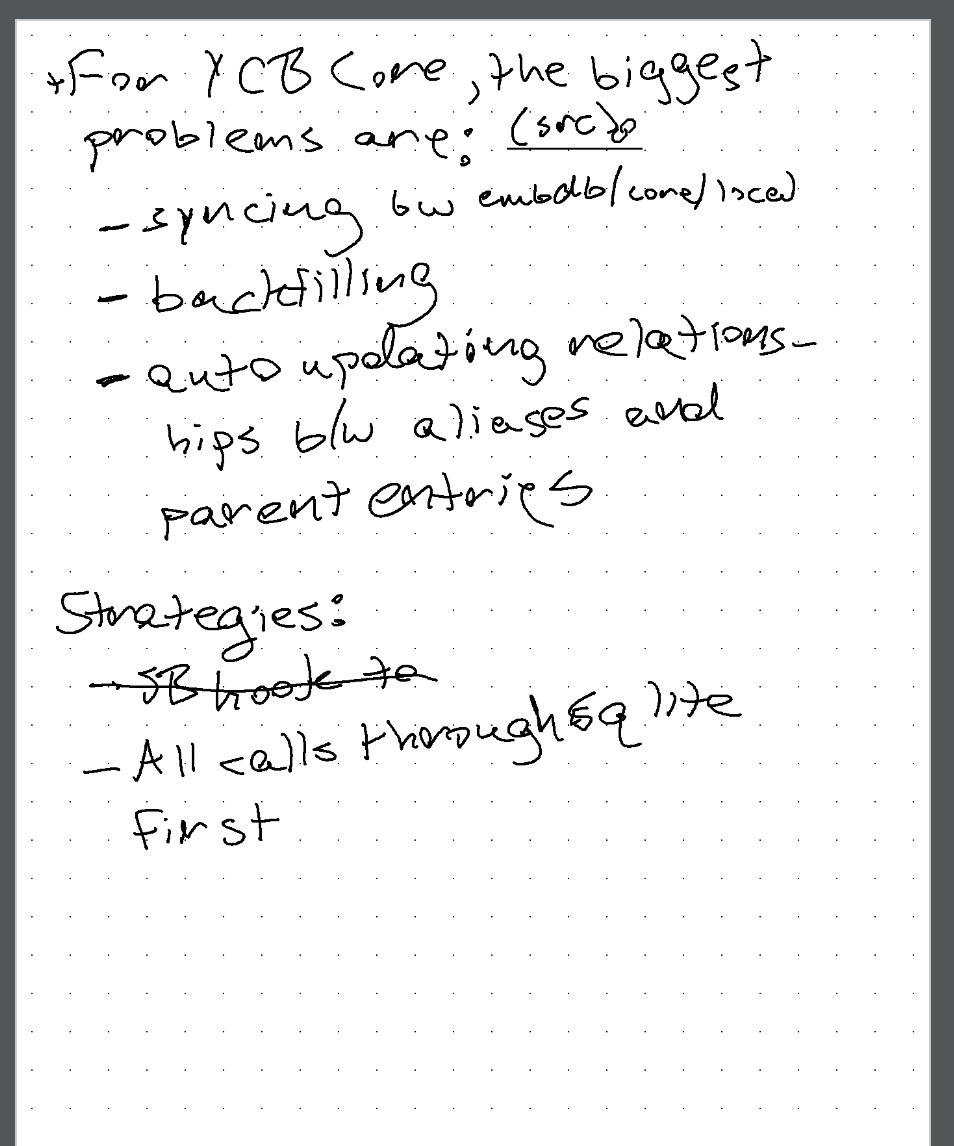 +For YCB Core, the biggest
problems are: (src)
- syncing bw embdb/core/local
- backfilling
- auto updating relations-
hips b/w aliases and
parent entries
Strategies:
- SB hook to
- All calls through Sqlite
first